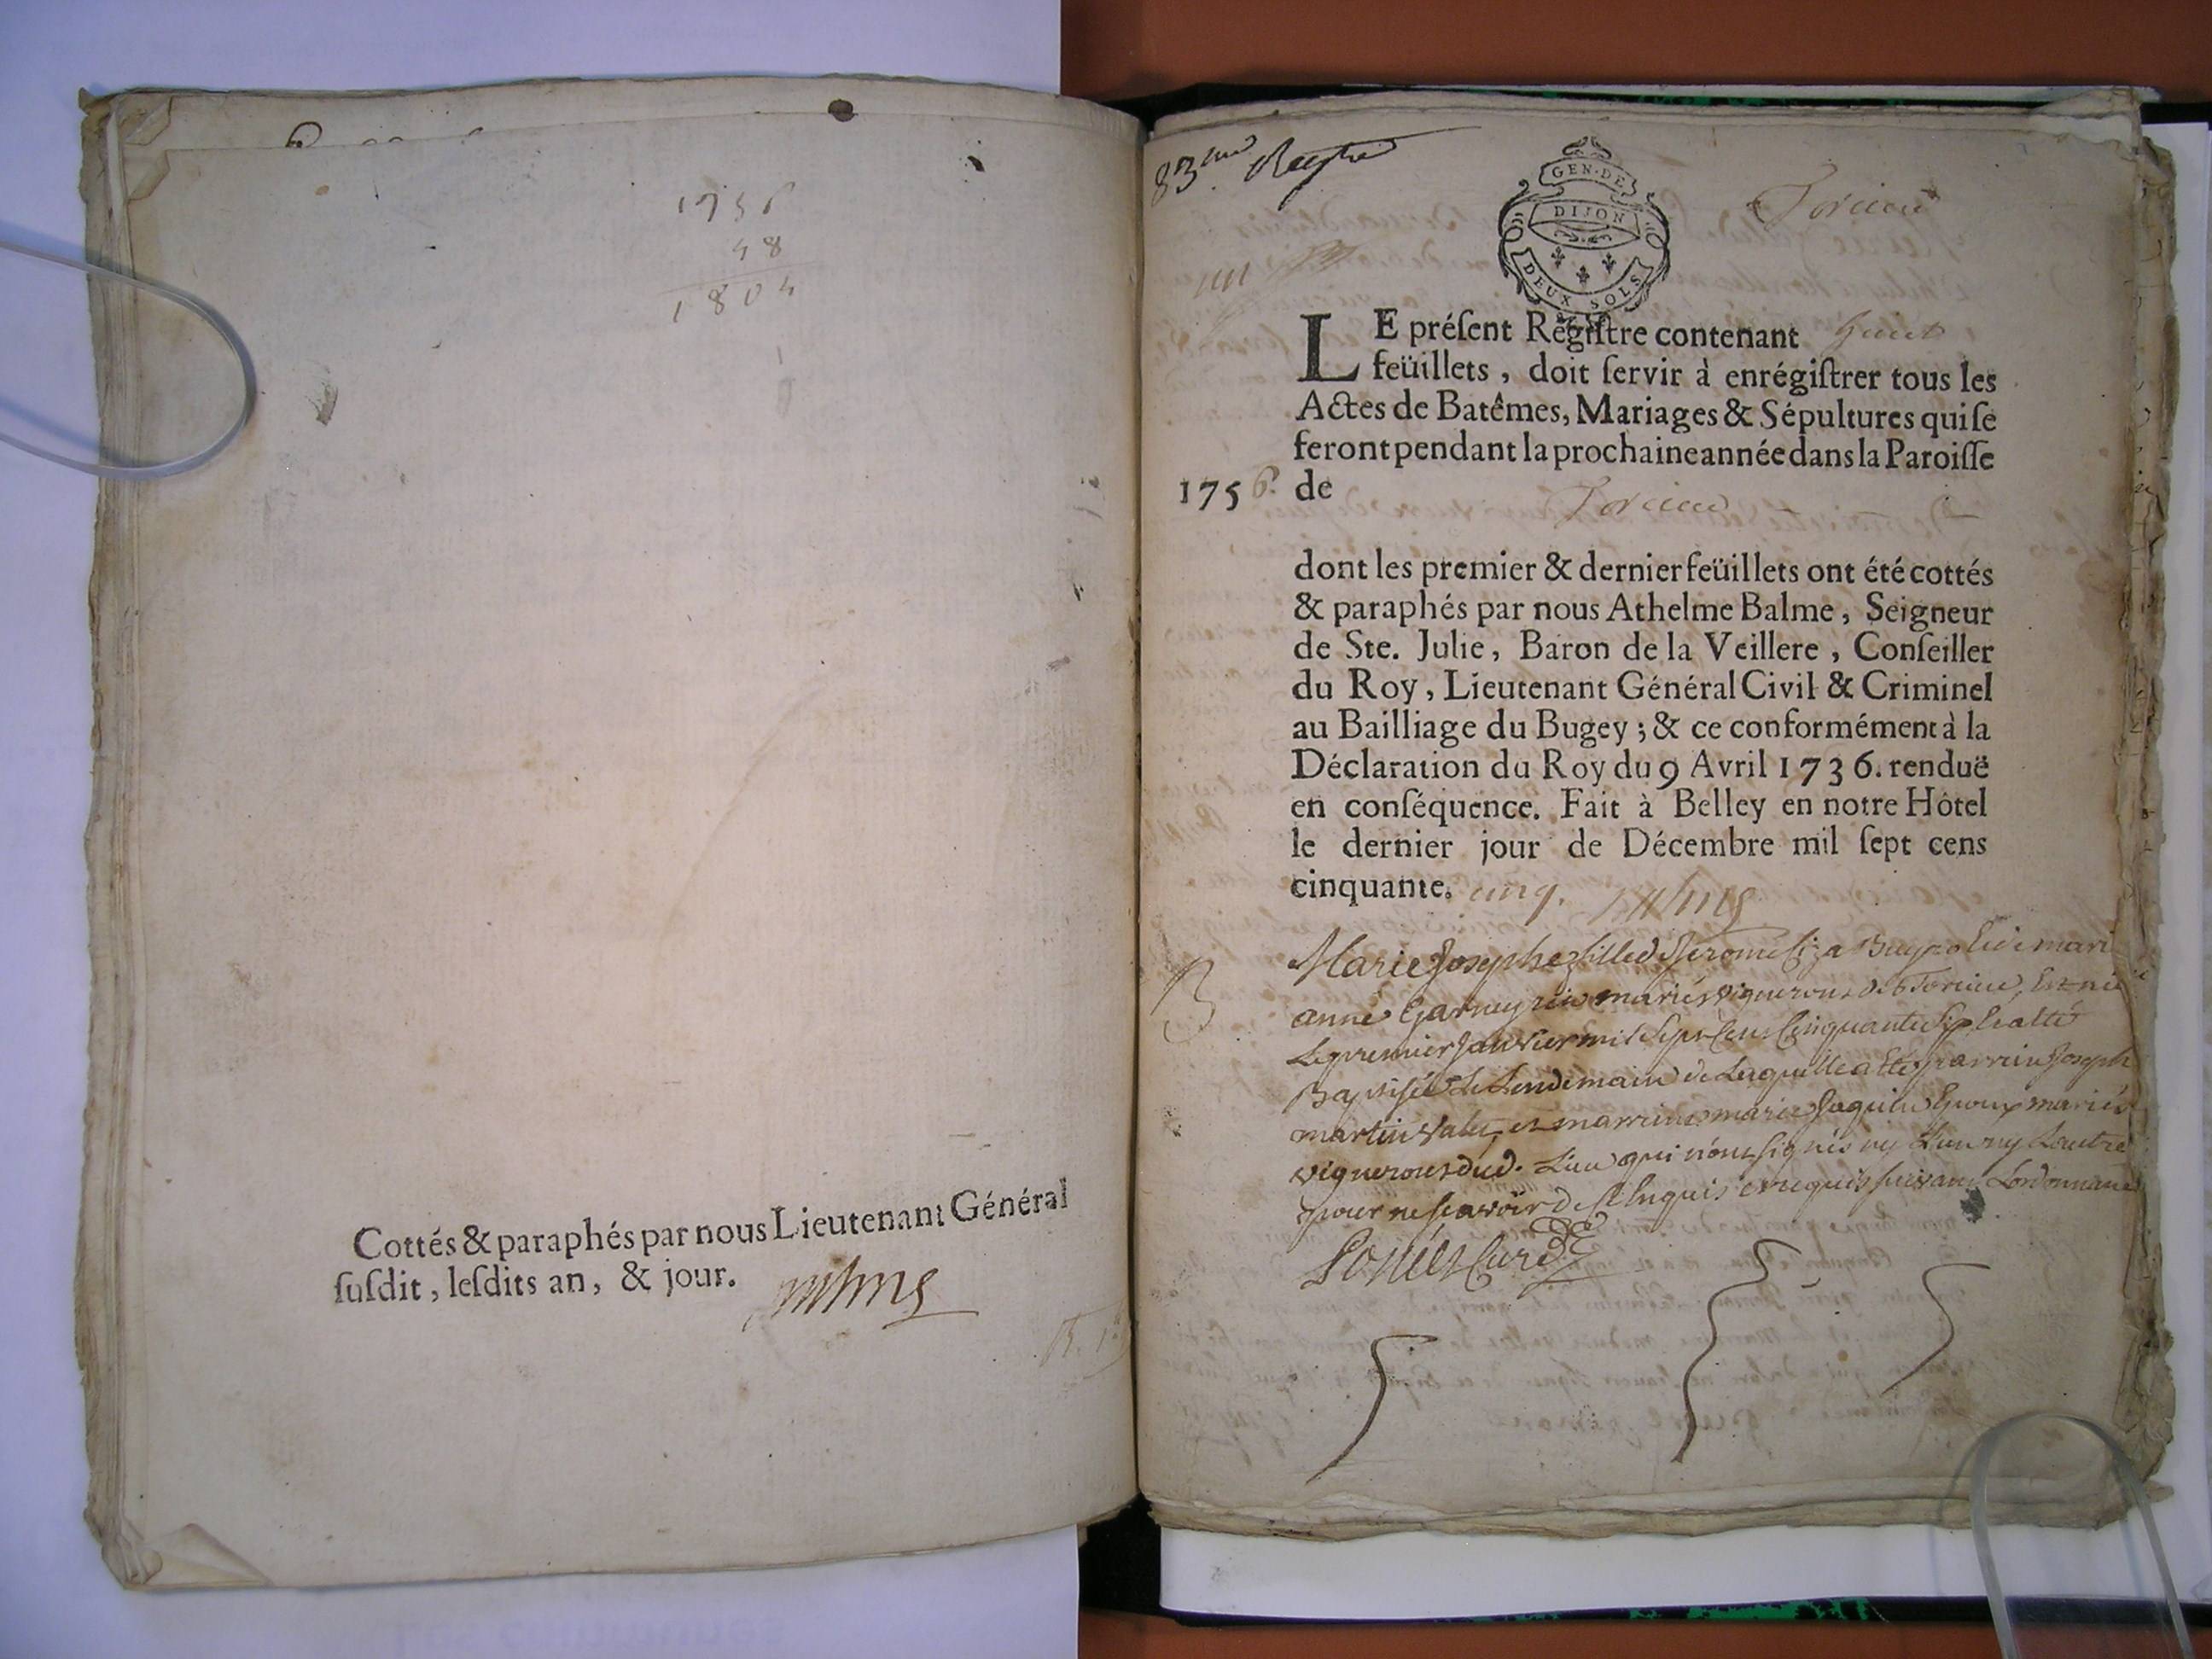 1756
48
1804
Cottés & paraphés par nous Lieutenant Général
ſuſdit, leſdits an, & jour.
83me Regstre
GEN·DE
DIJON
DEUX SOLS
Torcieu
LE préſent Régiſtre contenant huit
feüillets, doit ſervir à enrégiſtrer tous les
Actes de Batêmes, Mariages & Sépultures qui ſe
feront pendant la prochaine année dans la Paroiſſe
1756. de Torcieu
dont les premier & dernier feüillets ont été cottés
& paraphés par nous Athelme Balme, Seigneur
de Ste. Julie, Baron de la Veillere, Conſeiller
du Roy, Lieutenant Général Civil & Criminel
au Bailliage du Bugey; & ce conformément à la
Déclaration du Roy du 9 Avril 1736. renduë
en conſéquence. Fait à Belley en notre Hôtel
le dernier jour de Décembre mil ſept cens
cinquante. cinq.
B
Marie Josephe fille de Jerome mari
anne mariés vignerons de Torcieu, Est née
Le premier Janvier mil sept Cens Cinquante six Et a êté
Baptisée Le Lendemain de Laquelle a êté parrein Joseph
martin valet, et marreine marie Jaquin Epoux mariés
vignerons dud. Lieu qui n'ont signés ny L'un ny Lautre
pour ne sçavoir de ce Enquis et requis suivant Lordonnance
Curé